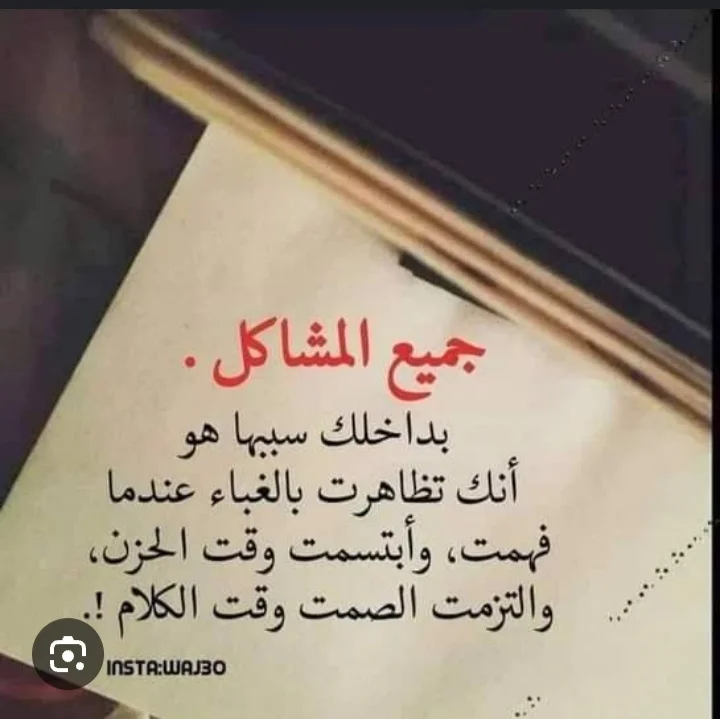 جميع المشاكل .
بداخلك سببها هو
أنك تظاهرت بالغباء عندما
فهمت، وأبتسمت وقت الحزن،
والتزمت الصمت وقت الكلام !.
INSTA:WAJ30